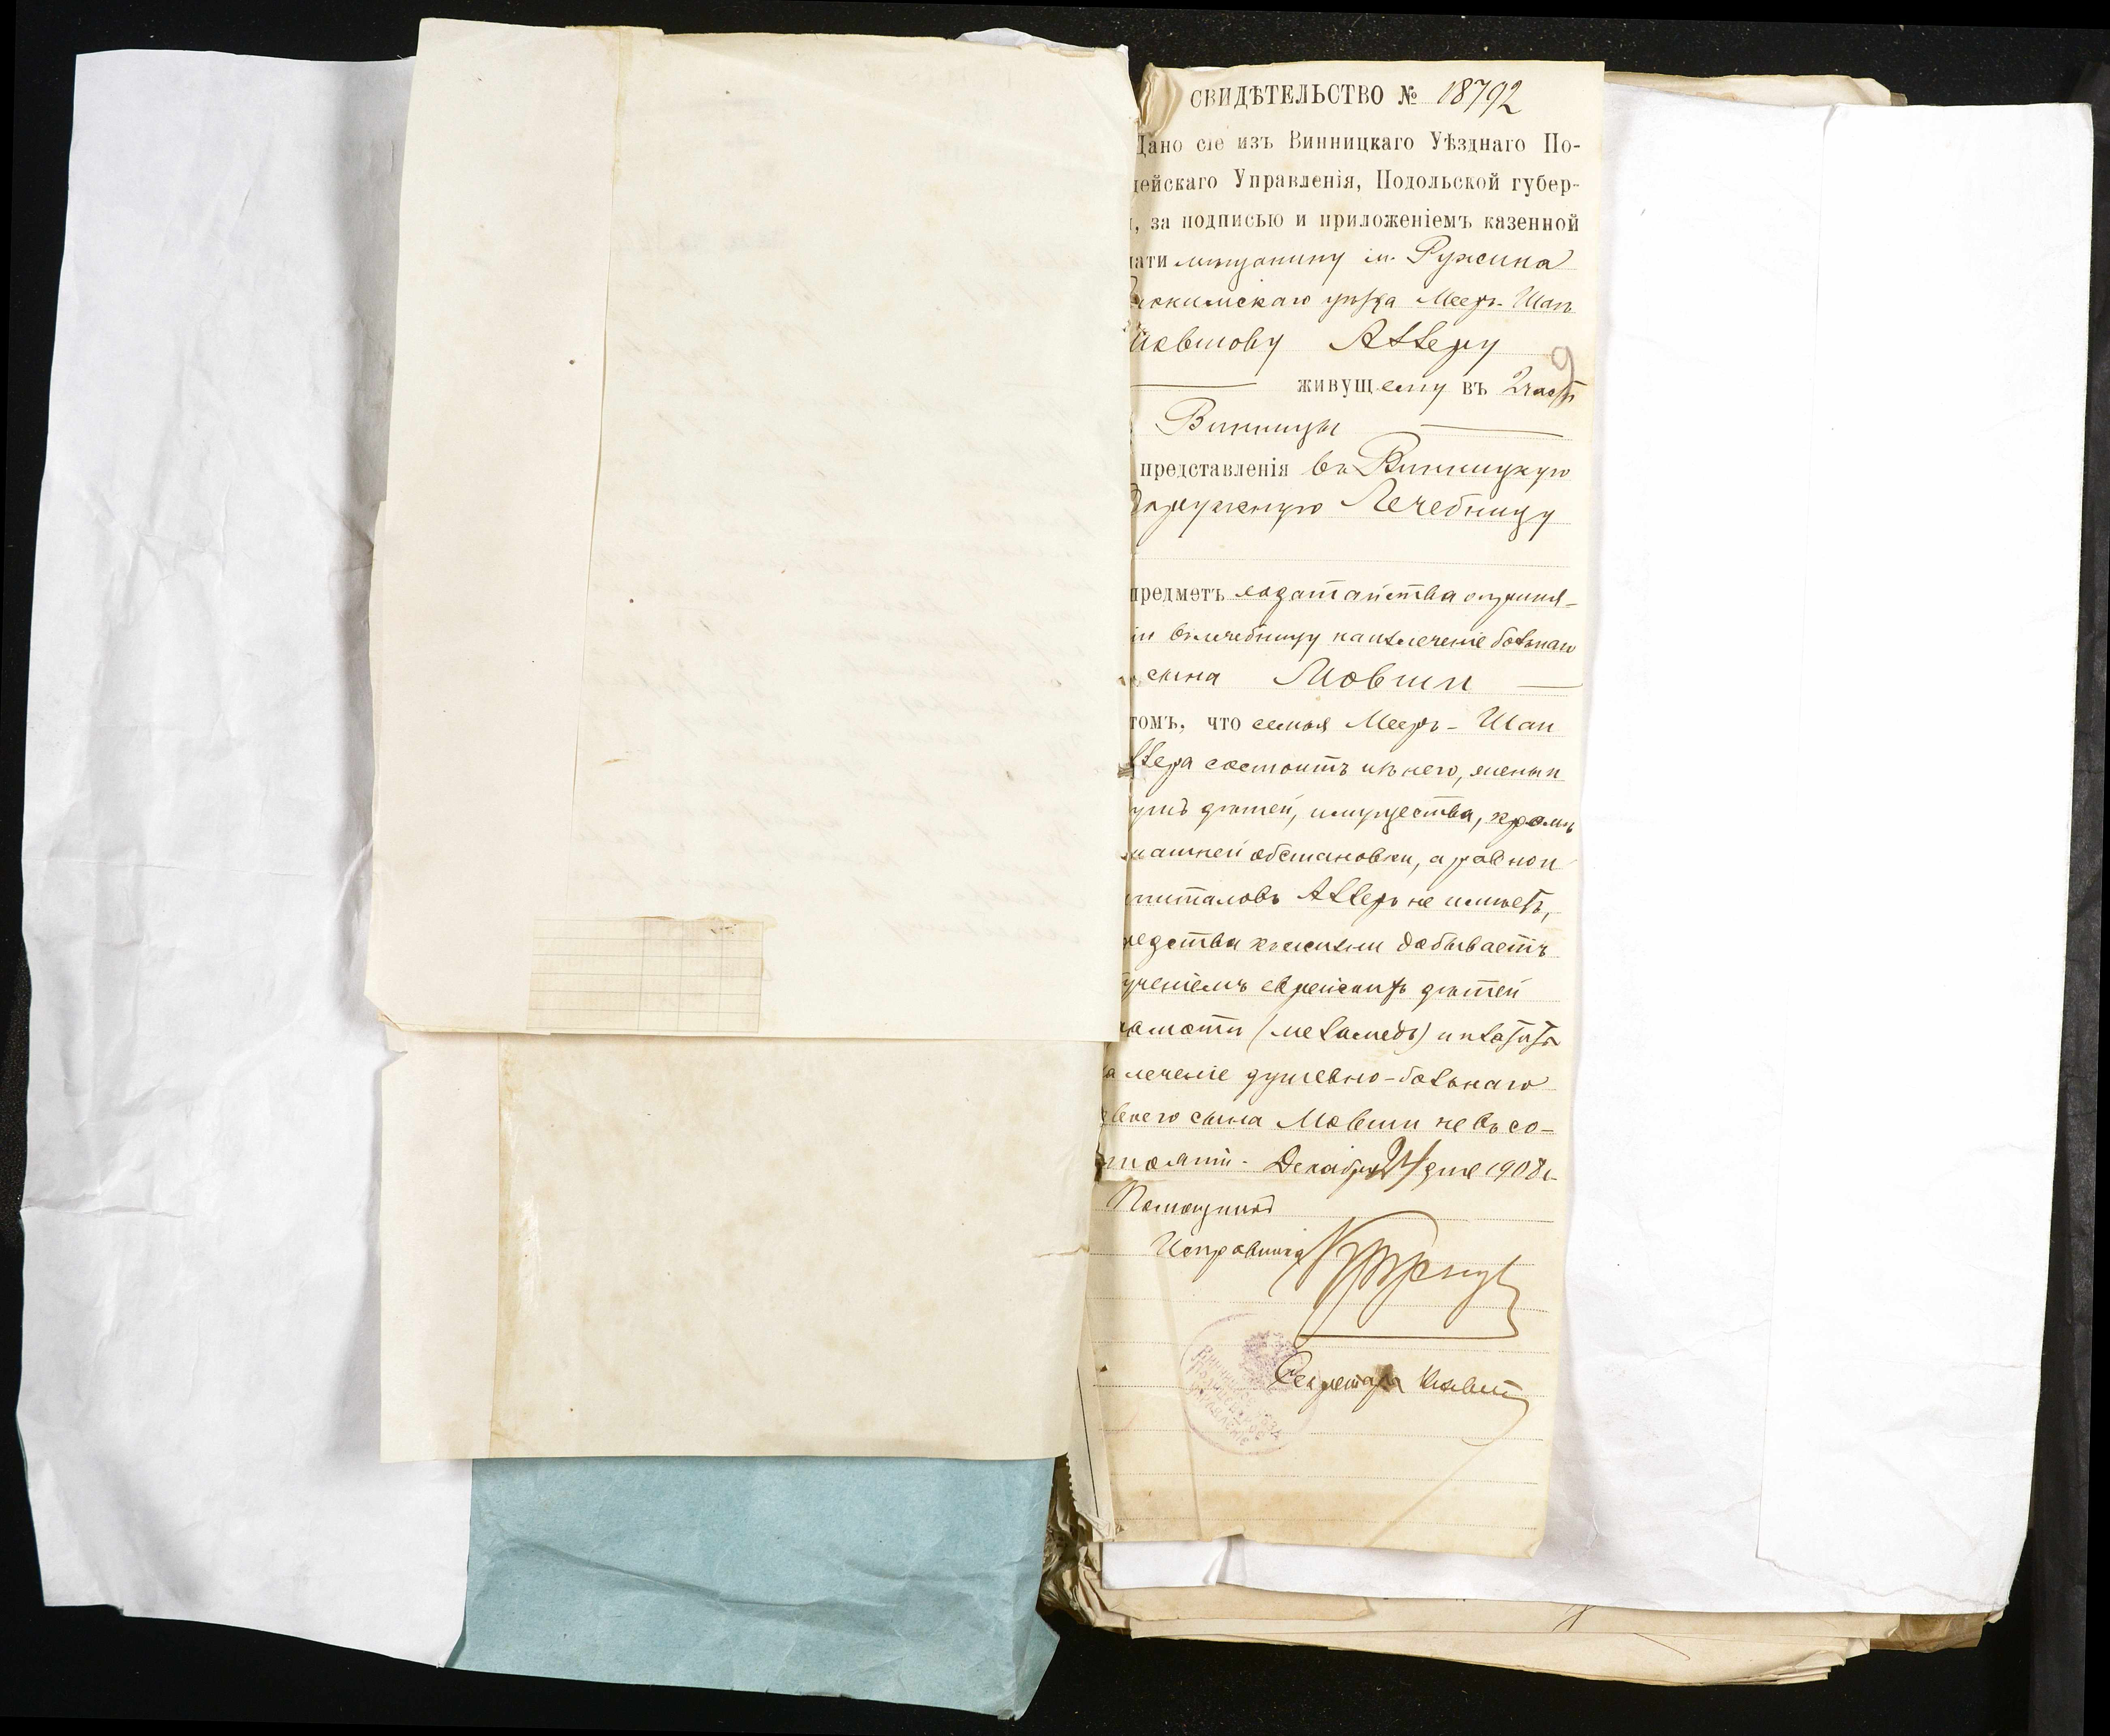 СВИДѢТЕЛЬСТВО № 18792
Дано сіе изъ Винницкаго Уѣзднаго По-
цейскаго Управленія, Подольской губер-
за подписью и приложеніемъ казенной
чати мѣщанину м. Ружина
уѣзда Мееръ-Шап
Мовшову Аллеру
9
живущему въ 2 части
Винницы
представленія въ Винницкую
Окружную Лечебницу
предметъ ходатайства о принят-
іи въ лечебницу на излеченіе больнаго
сына Мовши
томъ, что семья Мееръ-Шап
ллера состоитъ изъ него, жены и
дѣтей, имущества, кромѣ
машней обстановки, а равно и
питаловъ Аллеръ не имѣетъ,
редства къ жизни добываетъ
ученіемъ еврейскихъ дѣтей
рамоти (меламедъ) и платить
а леченіе душевно-больнаго
своего сына Мовши не въ со-
стояніи. Декабря 24 дня 1908 г.
Помощникъ
Исправника
Секретарь
Винницкое Уѣздн.
Полицейское
Управленіе